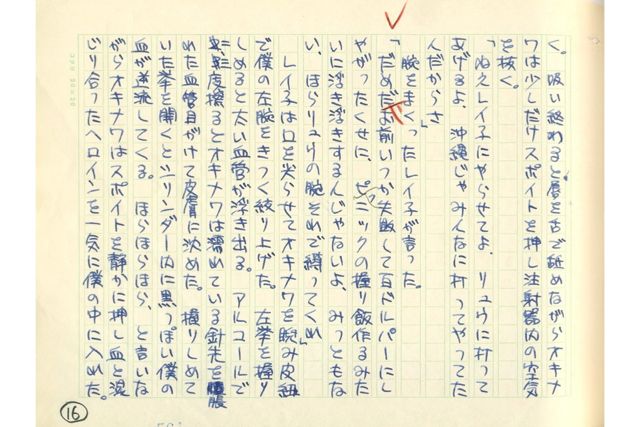 く。吸い終わると唇を舌で舐めながらオキナ
ワは少しだけスポイトを押し注射器内の空気
を抜く。
「ねえレイ子にやらせてよ、リュウに打って
あげるよ、沖縄じゃみんなに打ってやってた
んだからさ」
腕をまくったレイ子が言った。
「だめだよお前いつか失敗して百ドルパーにし
やがったくせに、ピクニックの握り飯作るみた
いに浮き浮きするんじゃないよ、みっともな
い、ほらリュウの腕それで縛ってくれ」
レイ子は口を尖らせてオキナワを睨み皮紐
で僕の左腕をきつく絞り上げた。左拳を握り
しめると太い血管が浮き出る。アルコールで
二、三度擦るとオキナワは濡れている針先を膨
れた血管目がけて皮膚に沈めた。握りしめて
いた拳を開くとシリンダー内に黒っぽい僕の
血が逆流してくる。ほらほらほら、と言いな
がらオキナワはスポイトを静かに押し血と混
じり合ったヘロインを一気に僕の中に入れた。
16